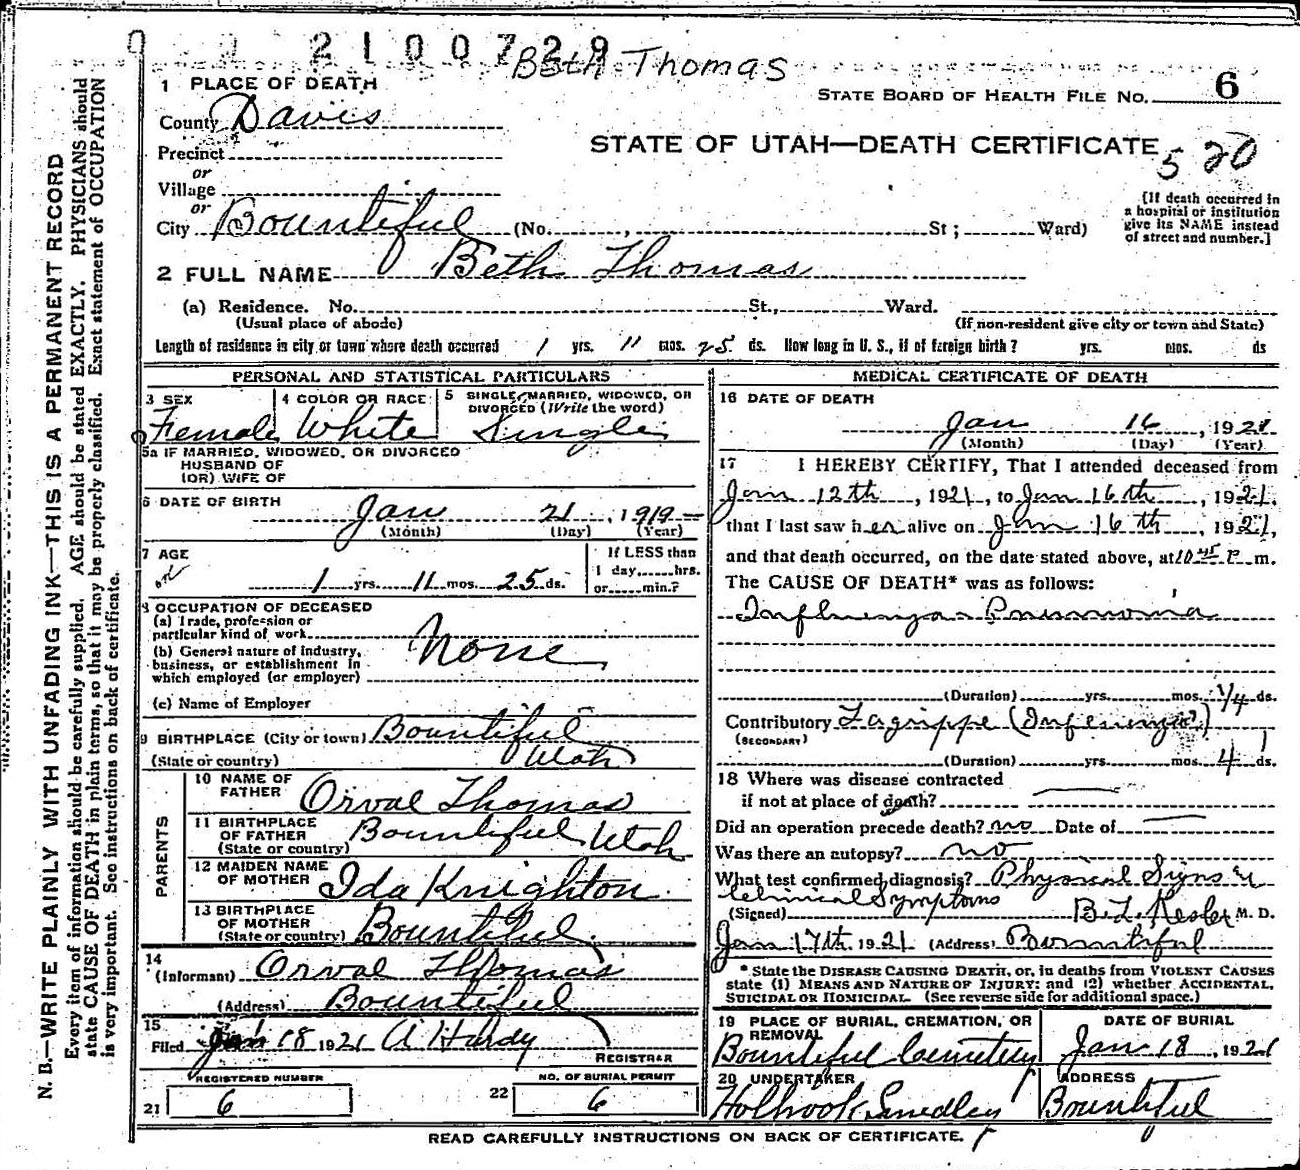 2100729
Beth Thomas
1 PLACE OF DEATH
STATE BOARD OF HEALTH FILE NO. 6
County Davis
STATE OF UTAH—DEATH CERTIFICATE
520
Precinct
or
Village
or
City Bountiful (No. , St ; Ward)
[If death occurred in
a hospital or institution
give its NAME instead
of street and number.]
2 FULL NAME Beth Thomas
(a) Residence. No. St., Ward.
(Usual place of abode) (If non-resident give city or town and State)
Length of residence in city or town where death occurred 1 yrs. 11 mos. 25 ds. How long in U. S., if of foreign birth? yrs. mos. ds
PERSONAL AND STATISTICAL PARTICULARS
3 SEX 4 COLOR OR RACE 5 SINGLE, MARRIED, WIDOWED, OR
DIVORCED (Write the word)
Female White Single
5a IF MARRIED, WIDOWED, OR DIVORCED
HUSBAND OF
(OR) WIFE OF
6 DATE OF BIRTH
Jan 21, 1919
(Month) (Day) (Year)
7 AGE If LESS than
1 yrs. 11 mos. 25 ds. 1 day,......hrs.
or......min.?
8 OCCUPATION OF DECEASED
(a) Trade, profession or
particular kind of work
(b) General nature of industry,
business, or establishment in
which employed (or employer)
None
(c) Name of Employer
9 BIRTHPLACE (City or town) Bountiful
(State or country) Utah
PARENTS
10 NAME OF
FATHER Orval Thomas
11 BIRTHPLACE
OF FATHER
(State or country) Bountiful Utah
12 MAIDEN NAME
OF MOTHER Ida Knighton
13 BIRTHPLACE
OF MOTHER
(State or country) Bountiful.
14
(Informant) Orval Thomas
(Address) Bountiful
15
Filed Jan 18 1921 A Hardy
REGISTRAR
REGISTERED NUMBER NO. OF BURIAL PERMIT
21 6 22 6
MEDICAL CERTIFICATE OF DEATH
16 DATE OF DEATH
Jan 16, 1921
(Month) (Day) (Year)
17 I HEREBY CERTIFY, That I attended deceased from
Jan 12th, 1921, to Jan 16th, 1921,
that I last saw her alive on Jan 16th, 1921,
and that death occurred, on the date stated above, at 10 45 P m.
The CAUSE OF DEATH* was as follows:
Influenza Pneumonia
(Duration) yrs. mos. ds.
Contributory Lagrippe (Influenza)
(SECONDARY)
(Duration) yrs. mos. 4 ds.
18 Where was disease contracted
if not at place of death?
Did an operation precede death? no Date of
Was there an autopsy? no
What test confirmed diagnosis? Physical Signs &
Clinical Symptoms
(Signed) B. L. Kesler M. D.
Jan 17th 1921 (Address) Bountiful
* State the DISEASE CAUSING DEATH, or, in deaths from VIOLENT CAUSES
state (1) MEANS AND NATURE OF INJURY; and (2) whether ACCIDENTAL,
SUICIDAL OR HOMICIDAL. (See reverse side for additional space.)
19 PLACE OF BURIAL, CREMATION, OR
REMOVAL
DATE OF BURIAL
Bountiful Cemetery Jan 18, 1921
20 UNDERTAKER ADDRESS
Holbrook Smedley Bountiful
READ CAREFULLY INSTRUCTIONS ON BACK OF CERTIFICATE.
N. B.—WRITE PLAINLY WITH UNFADING INK—THIS IS A PERMANENT RECORD
Every item of information should be carefully supplied. AGE should be stated EXACTLY. PHYSICIANS should
state CAUSE OF DEATH in plain terms, so that it may be properly classified. Exact statement of OCCUPATION
is very important. See instructions on back of certificate.